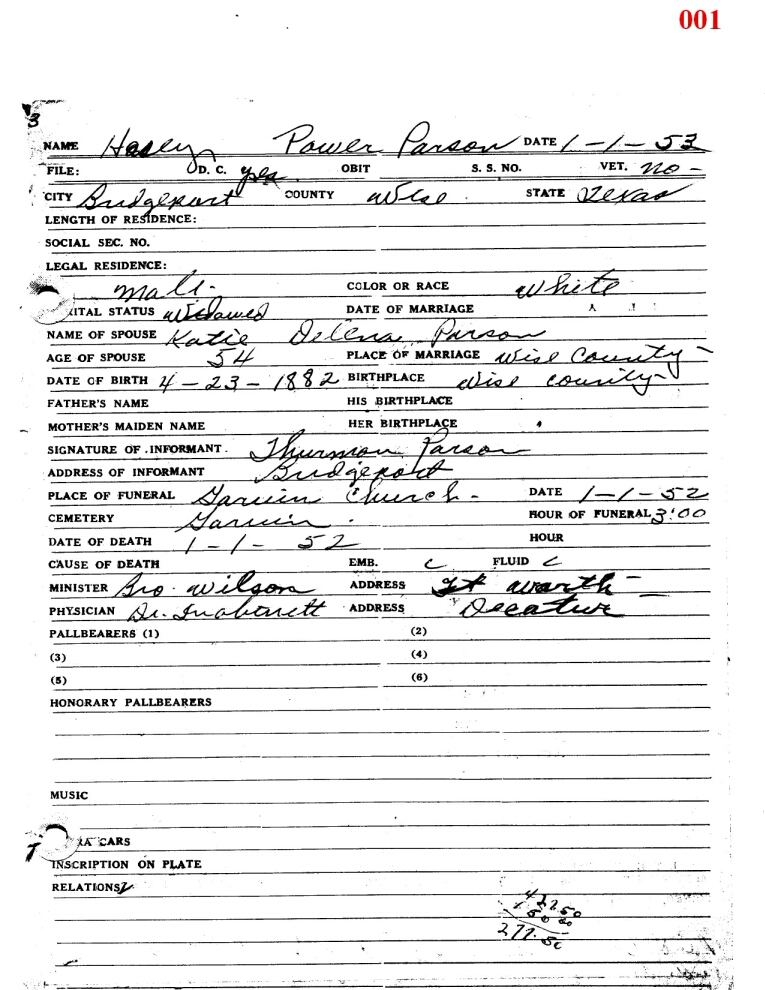 001
3
NAME Hasey Power Parson DATE 1-1-53
FILE: D. C. yes OBIT S. S. NO. VET. no -
CITY Bridgeport COUNTY Wise STATE Texas
LENGTH OF RESIDENCE:
SOCIAL SEC. NO.
LEGAL RESIDENCE:
Male COLOR OR RACE White
ITAL STATUS Widowed DATE OF MARRIAGE
NAME OF SPOUSE Katie Delena Parson
AGE OF SPOUSE 54 PLACE OF MARRIAGE Wise County -
DATE OF BIRTH 4-23-1882 BIRTHPLACE Wise County -
FATHER'S NAME HIS BIRTHPLACE
MOTHER'S MAIDEN NAME HER BIRTHPLACE
SIGNATURE OF INFORMANT Thurman Parson
ADDRESS OF INFORMANT Bridgeport
PLACE OF FUNERAL Garvin Church - DATE 1-1-52
CEMETERY Garvin HOUR OF FUNERAL 3:00
DATE OF DEATH 1-1-52 HOUR
CAUSE OF DEATH EMB. C FLUID C
MINISTER Bro. Wilson ADDRESS Ft Worth -
PHYSICIAN Dr. ADDRESS Decatur
PALLBEARERS (1) (2)
(3) (4)
(5) (6)
HONORARY PALLBEARERS
MUSIC
CARS
INSCRIPTION ON PLATE
RELATIONS
277.50